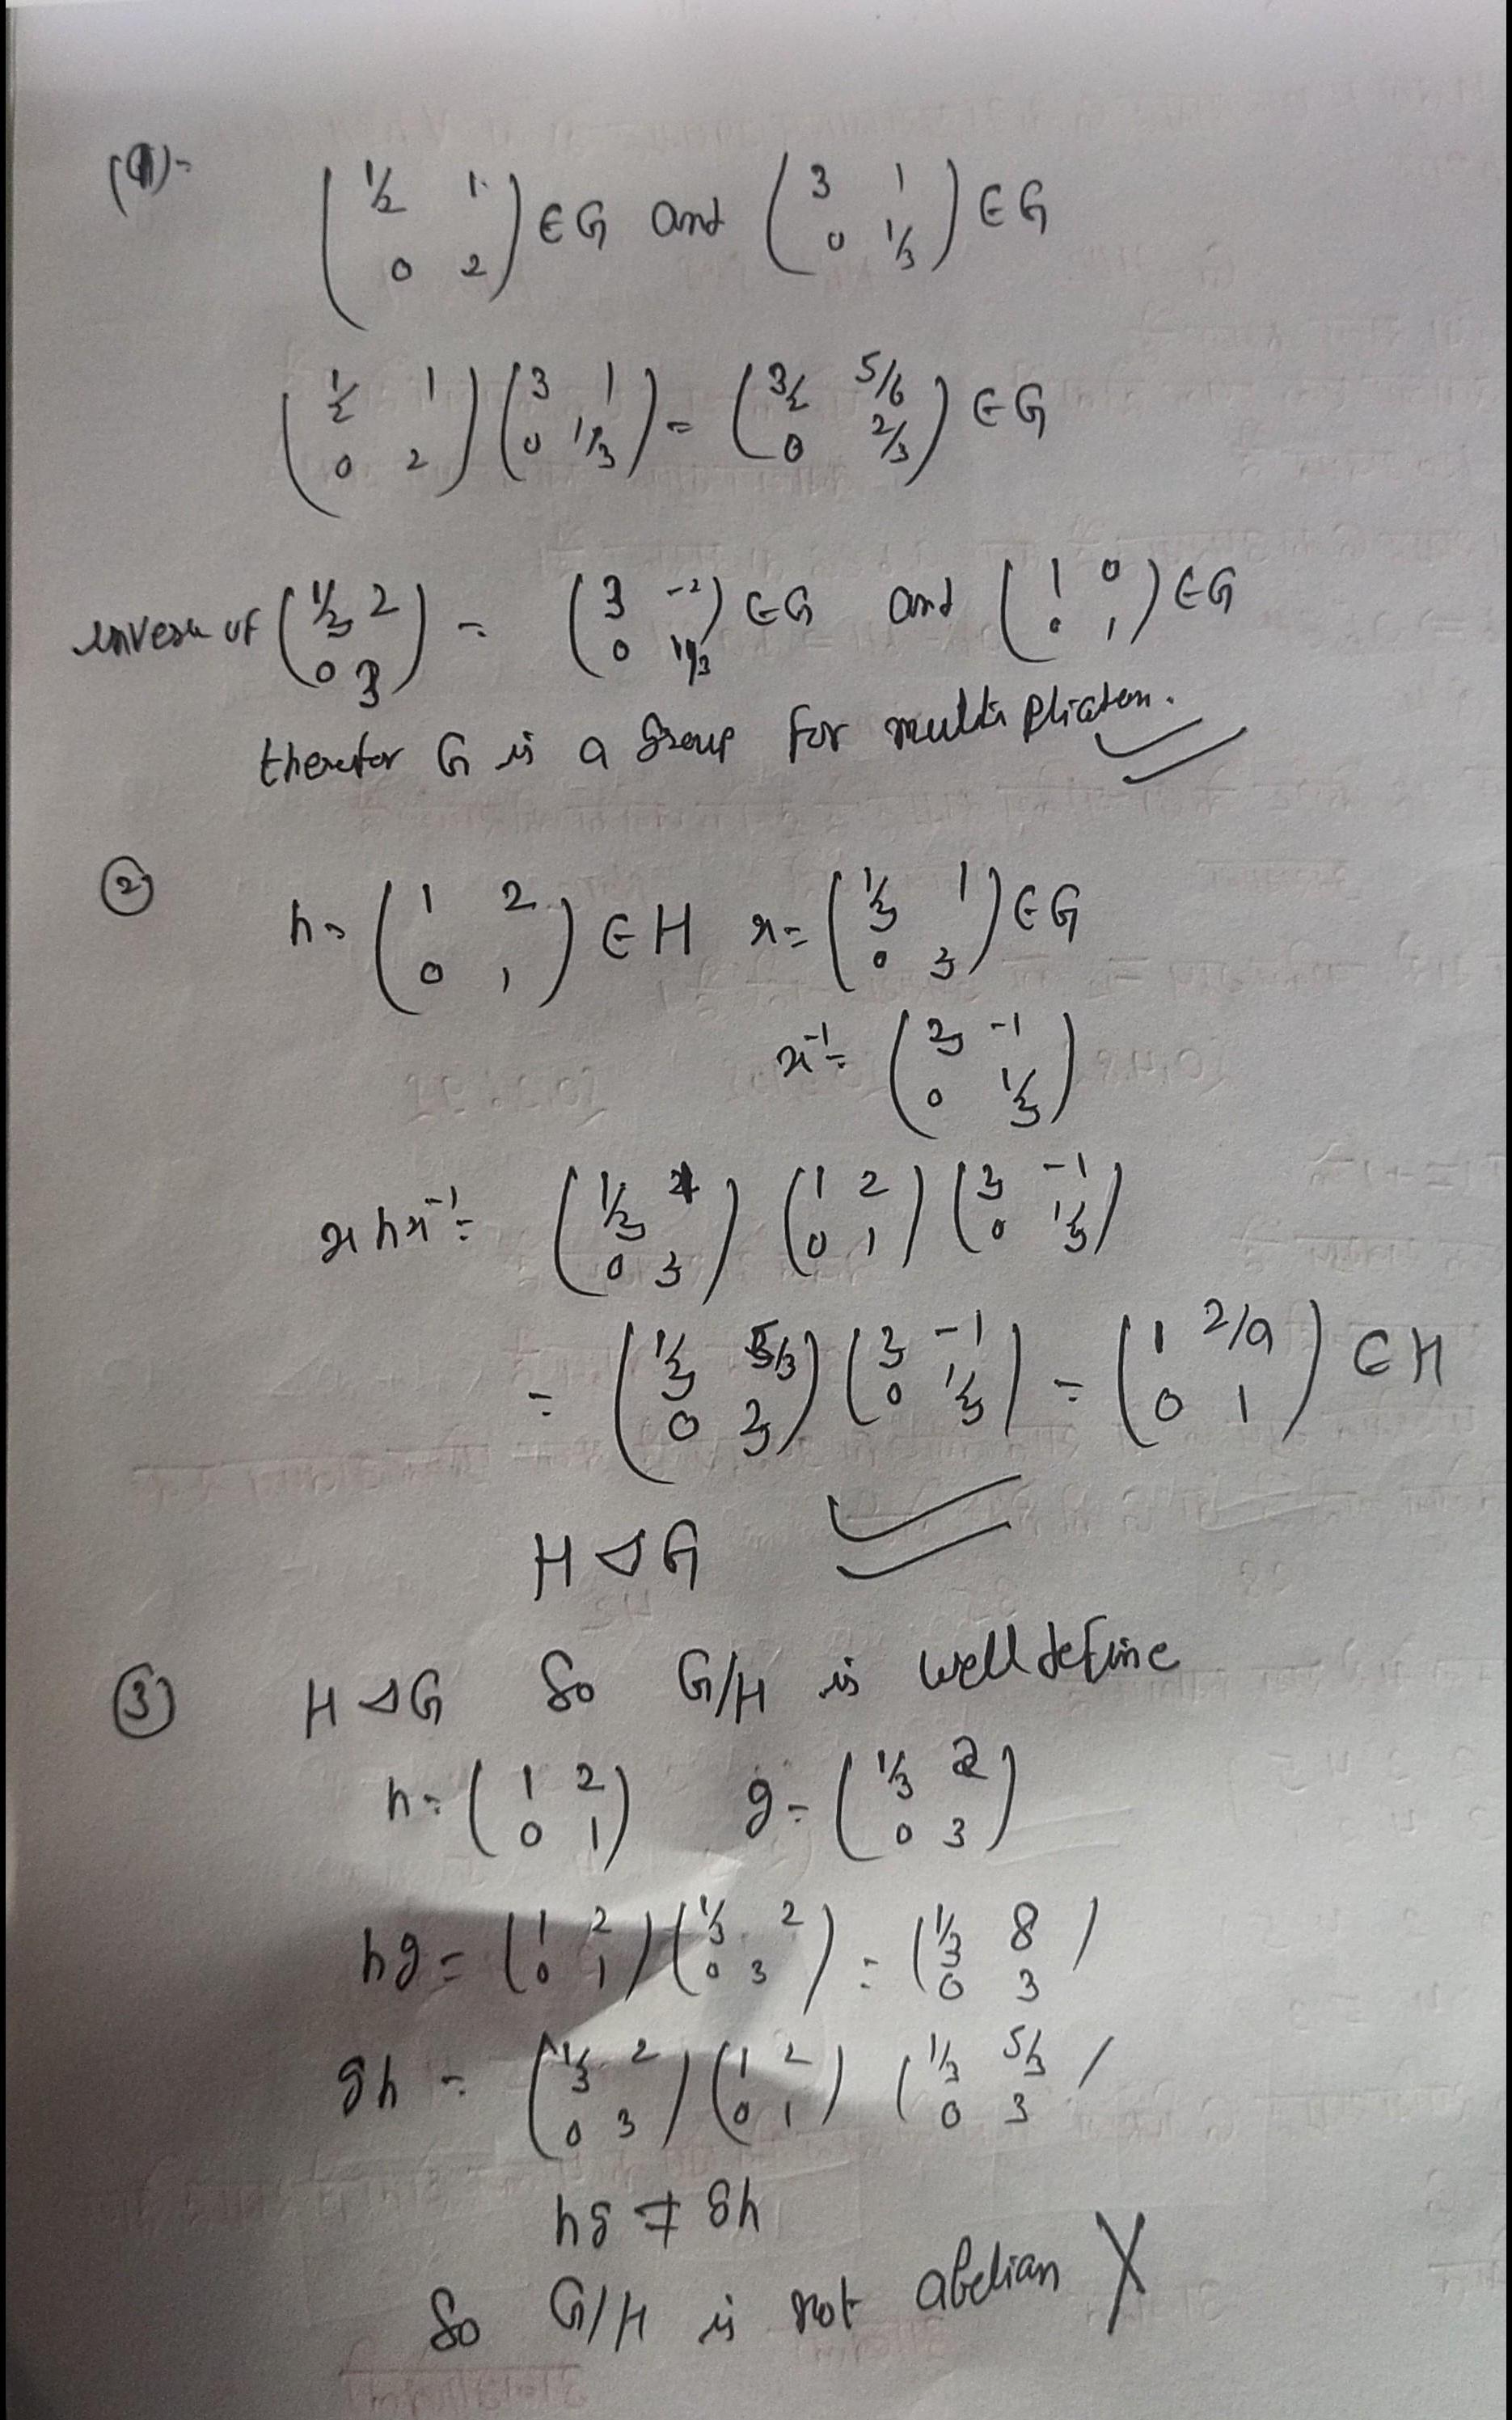 (1)- (1/2 1 ; 0 2) ∈ G and (3 1 ; 0 1/3) ∈ G
(1/2 1 ; 0 2) (3 1 ; 0 1/3) = (3/2 5/6 ; 0 2/3) ∈ G
inverse of (1/3 2 ; 0 3) = (3 -2 ; 0 1/3) ∈ G and (1 0 ; 0 1) ∈ G
therefor G is a Group for multiplication.
(2) h = (1 2 ; 0 1) ∈ H x = (1/3 1 ; 0 3) ∈ G
x⁻¹ = (3 -1 ; 0 1/3)
x h x⁻¹ = (1/3 1 ; 0 3) (1 2 ; 0 1) (3 -1 ; 0 1/3)
= (1/3 5/3 ; 0 3) (3 -1 ; 0 1/3) = (1 2/9 ; 0 1) ∈ H
H ⊲ G
(3) H ⊲ G So G/H is well define
h = (1 2 ; 0 1) g = (1/3 2 ; 0 3)
hg = (1 2 ; 0 1) (1/3 2 ; 0 3) = (1/3 8 ; 0 3)
gh = (1/3 2 ; 0 3) (1 2 ; 0 1) (1/3 5/3 ; 0 3)
hg ≠ gh
So G/H is not abelian X